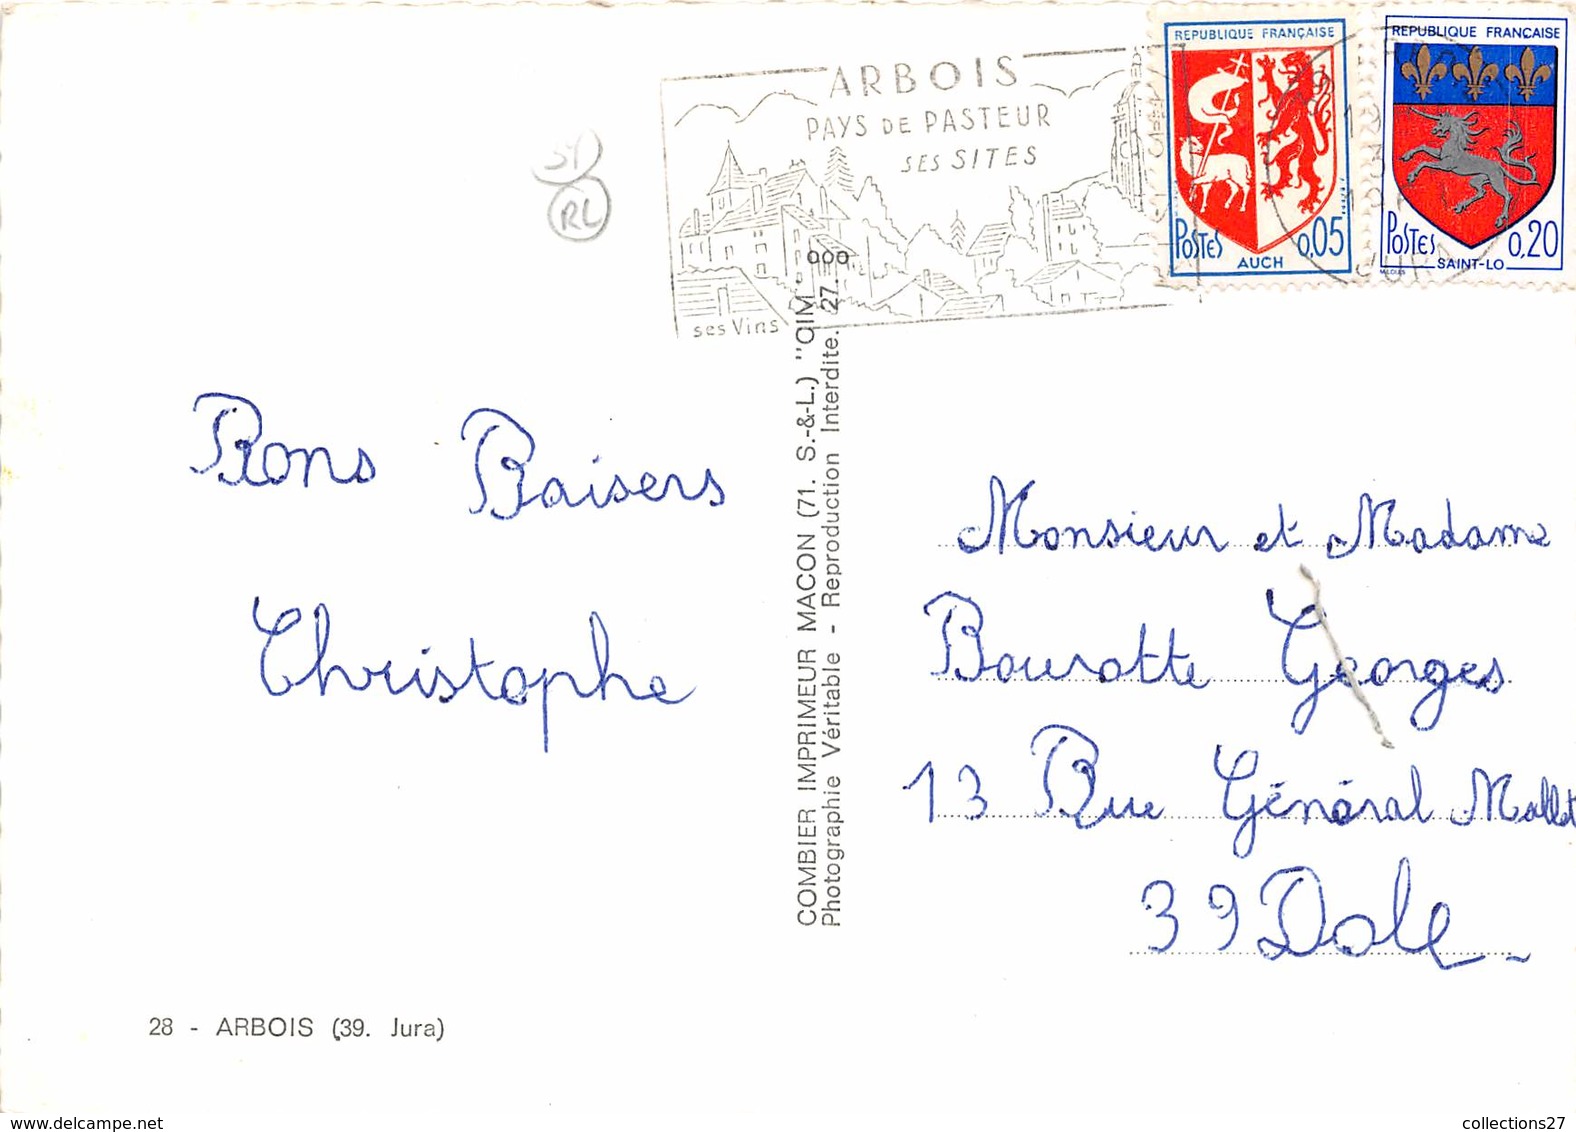 ARBOIS
PAYS DE PASTEUR
SES SITES
ses Vins
REPUBLIQUE FRANÇAISE
POSTES 0,05
AUCH
REPUBLIQUE FRANÇAISE
POSTES 0,20
SAINT-LO
RL
Bons Baisers
Christophe
28 - ARBOIS (39. Jura)
COMBIER IMPRIMEUR MACON (71. S.-&-L.) "CIM"
Photographie Véritable - Reproduction Interdite. 27...
Monsieur et Madame
Bourotte Georges
13 Rue Général Mallet
39 Dole
collections27